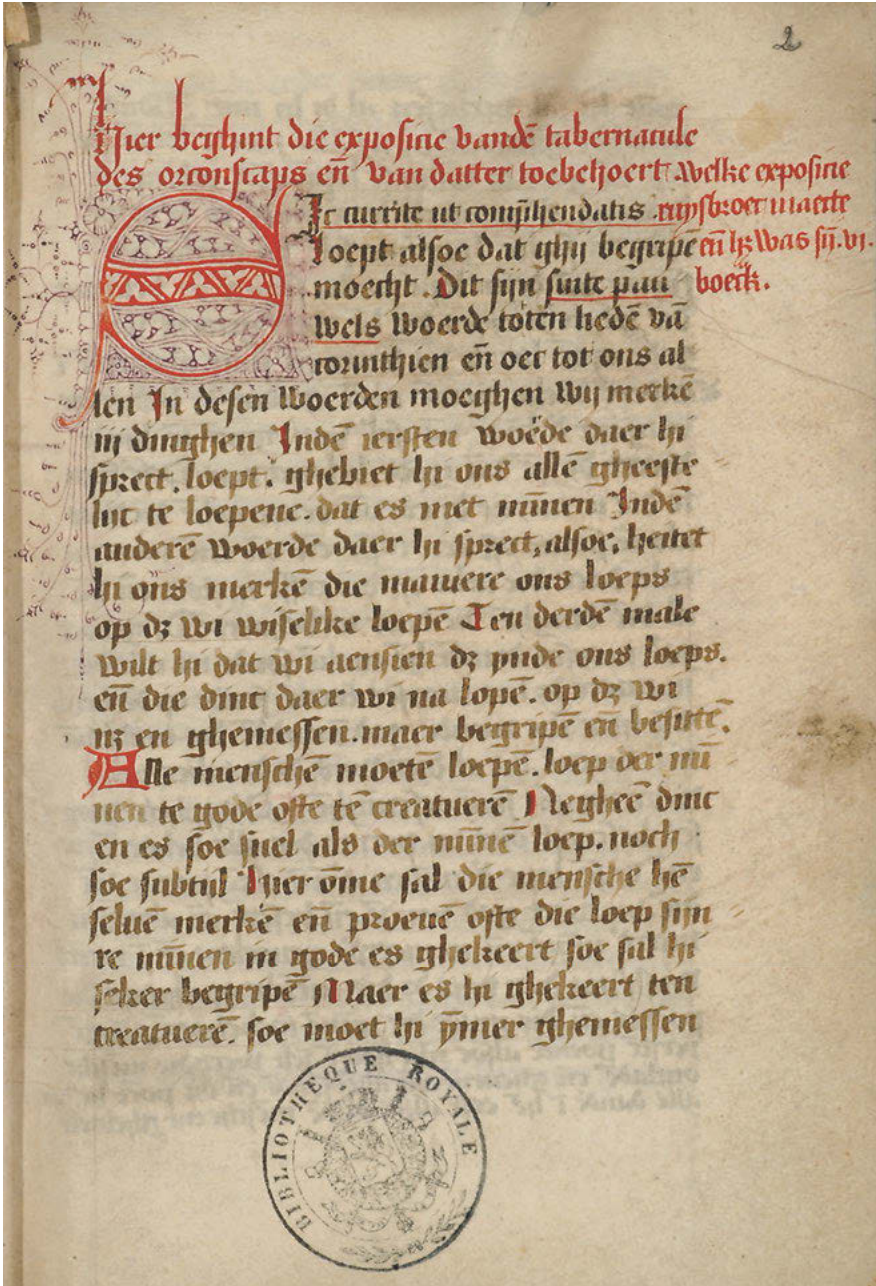 2
Hier beghint die exposicie vandē tabernacule
des orconscaps eñ van datter toebehoert welke exposicie
Sic currite ut comp̄hendatis . ruysbroec maecte
loept alsoe dat ghij begripē eñ hz was sij̄. vi.
moecht . Dit sijn sinte pau boeck.
wels woerde toten liedē vā
corinthien eñ oec tot ons al
len In desen woerden moeghen wij merkē
iij dinghen Indē iersten woēde daer hi
sprect. loept. ghebiet hi ons allē gheeste
lijc te loepene. dat es met mīnen Indē
anderē woerde daer hi sprect, alsoe, heitet
hi ons merkē die maniere ons loeps
op dz wi wiselike loepē Ten derdē male
wilt hi dat wi aensien dz ynde ons loeps.
eñ die dinc daer wi na lopē. op dz wi
nz en ghemessen. maer begripē eñ besittē.
Alle menschē moetē loepē. loep der mī
nen te gode ofte tē creatuerē Negheē dinc
en es soe snel als der mīnē loep. noch
soe subtijl Hier ōme sal die mensche hē
seluē merkē eñ proeuē ofte die loep sijn
re mīnen in gode es ghekeert soe sal hi
seker begripē Maer es hi ghekeert ten
creatuerē. soe moet hi ȳmer ghemessen
BIBLIOTHEQUE ROYALE